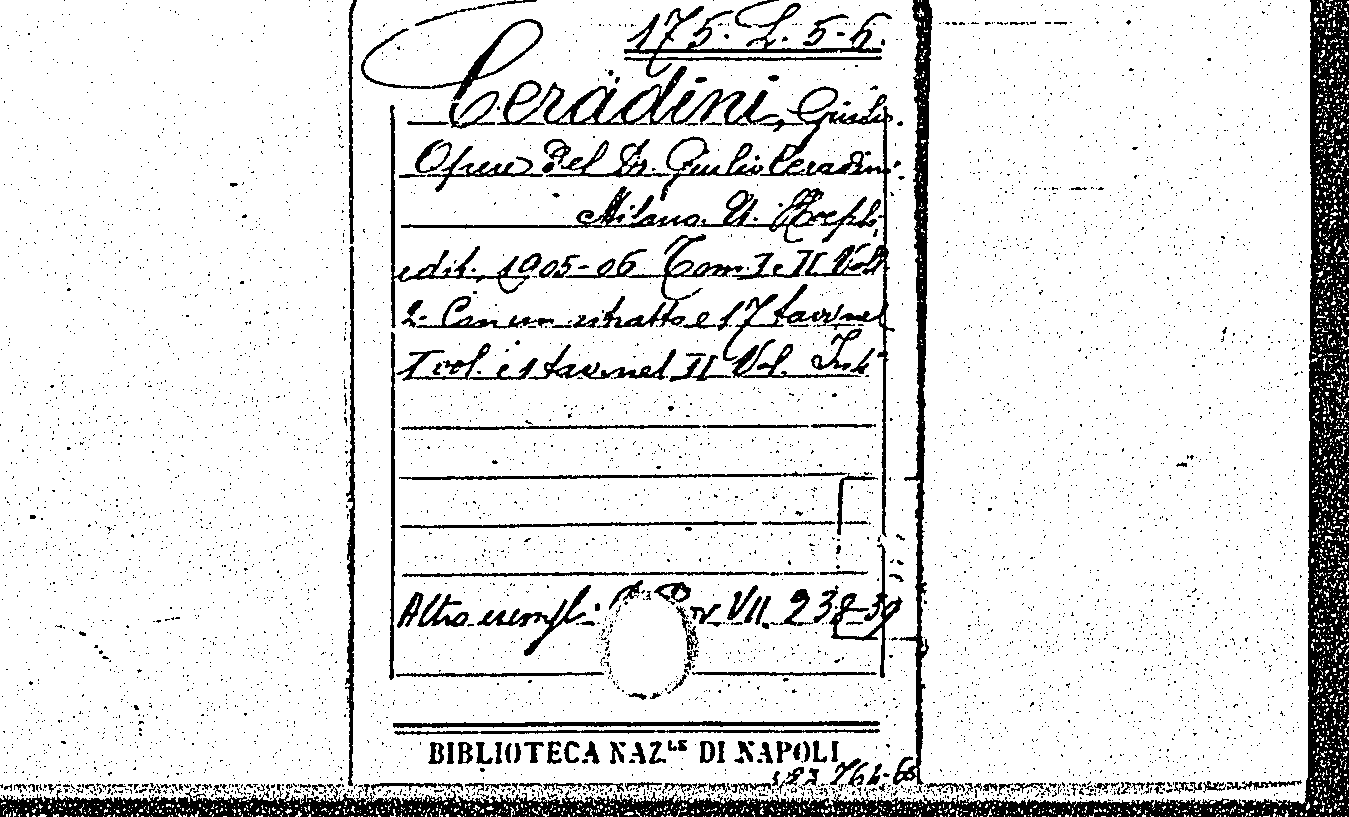 175. L. 5-6.
Ceradini, Giulio.
Opere del Dr. Giulio Ceradini.
Milano. U. Hoepli,
edit. 1905-06 Tom. I e II Voll.
2. Con un ritratto e 17 tavv. nel
I vol. e 1 tav. nel II Vol. In 4°
Altro esempl: VII. 238-39
BIBLIOTECA NAZ.LE DI NAPOLI